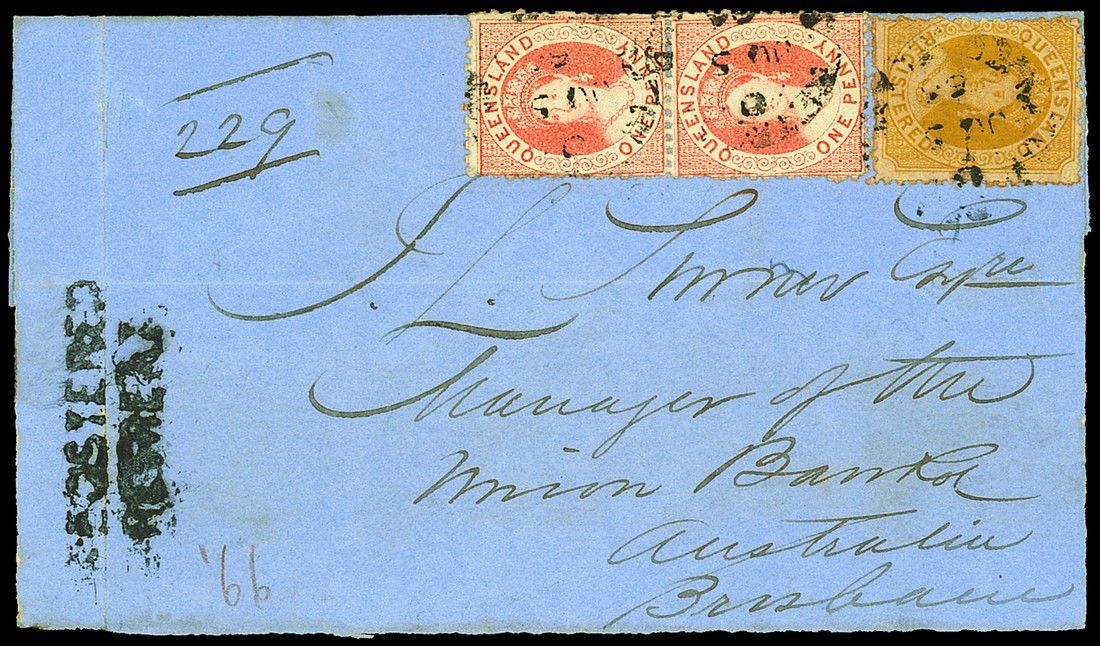 QUEENSLAND ONE PENNY
QUEENSLAND ONE PENNY
QUEENSLAND REGISTERED
229
J. L. Turner Esqre
Manager of the
Union Bank of
Australia
Brisbane